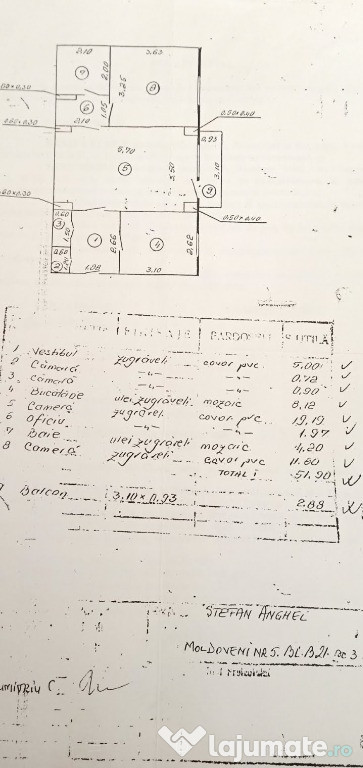 2,10
3,63
0,30
7
2,00
3,25
8
6
1,05
0,50x0,40
2,10
0,93
6,70
5
5,50
3,10
9
0,60
3
1,50
1
2,66
4
2,62
0,50x0,40
0,60
2
1,08
3,10
UTILĂ
1 Vestibul zugrăveli covor pvc. 5.00
2 Cămară -"- -"- 0.72
3 Cămară -"- -"- 0.90
4 Bucătărie ulei, zugrăveli mozaic 8,12
5 Cameră zugrăveli covor pvc 19,19
6 Oficiu -"- -"- 1.97
7 Baie ulei zugrăveli mozaic 4,20
8 Cameră zugrăveli covor pvc 11.60
TOTAL: 51.90
9 Balcon 3,10 x 0,93 2.88
ȘTEFAN ANGHEL
MOLDOVENI NR 5. BL.B21. SC 3
lajumate.ro